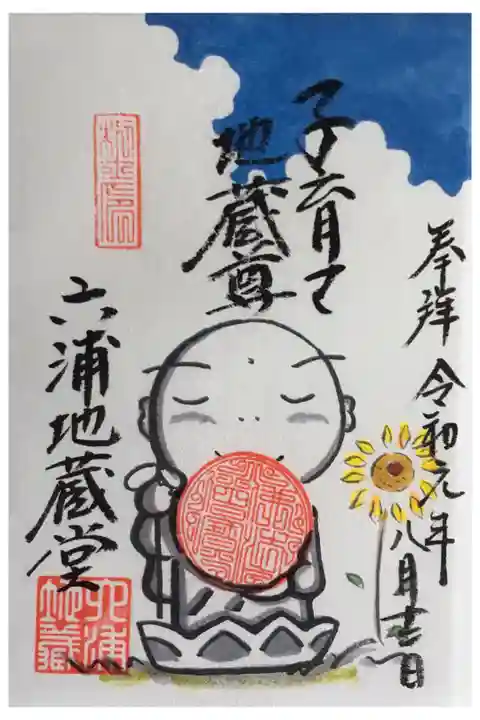 奉拝 令和元年八月
子育て
地蔵尊
佛法僧寶
六浦地蔵堂
六浦
地蔵